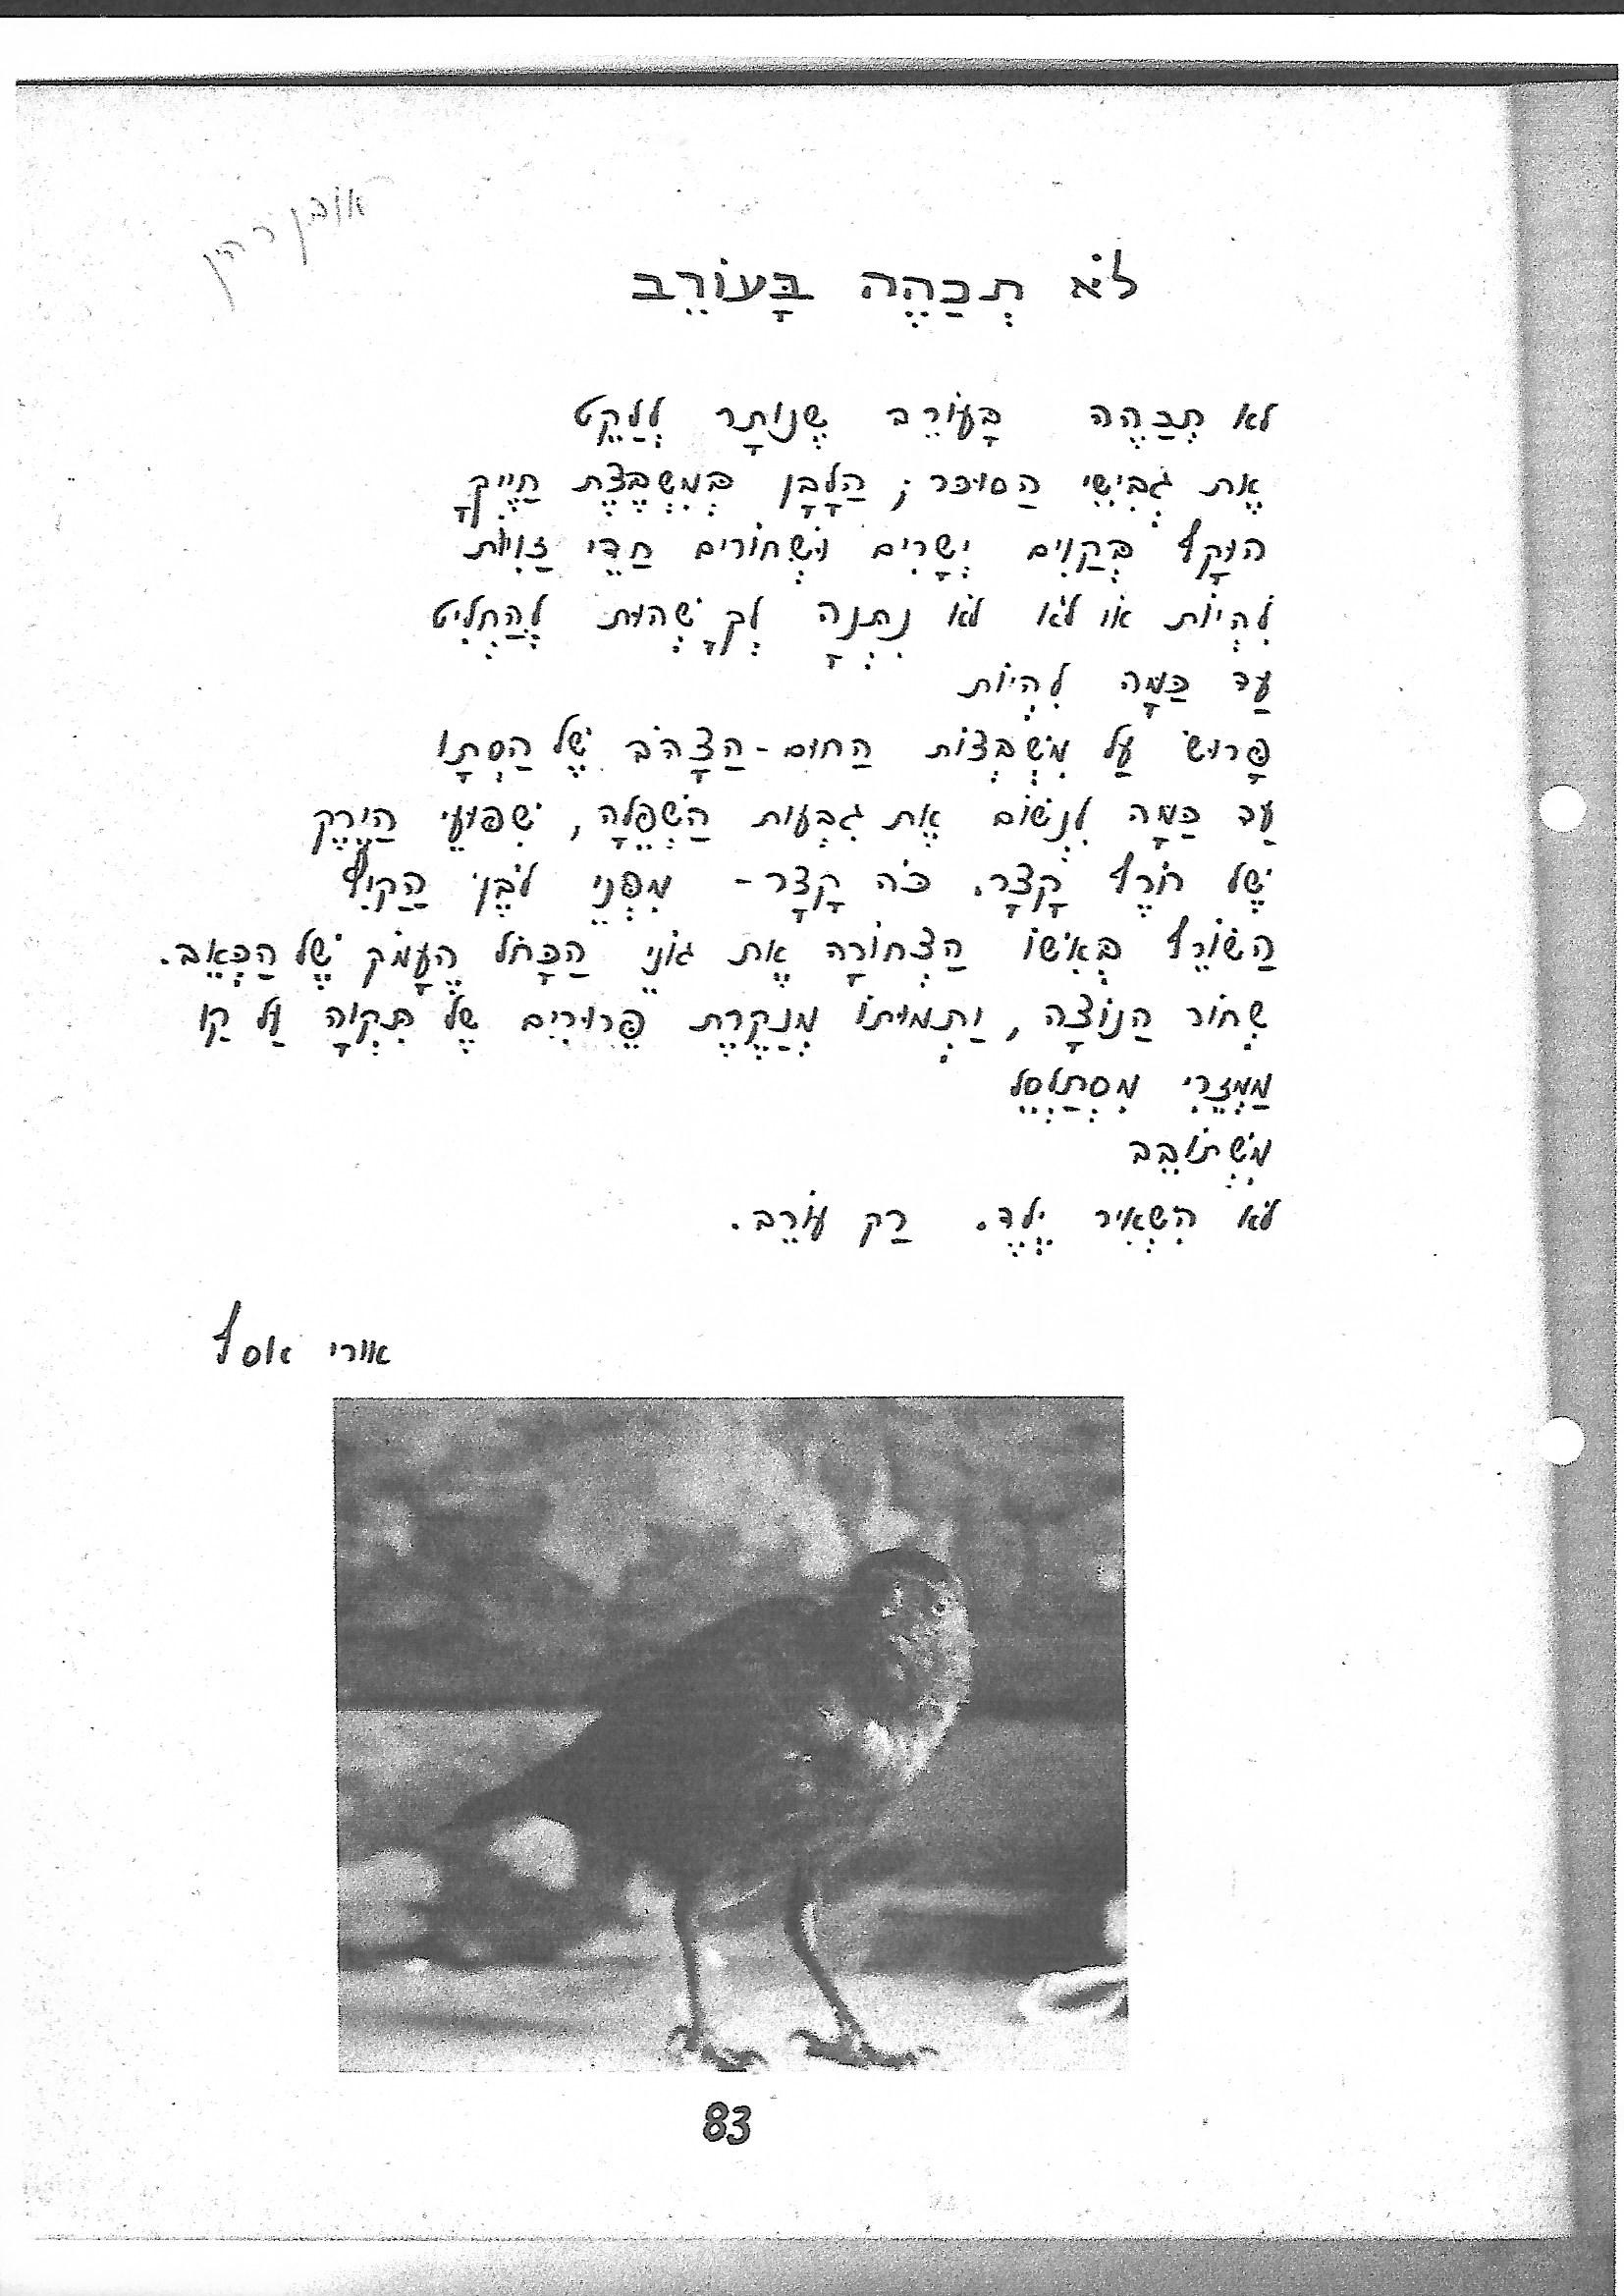 לֹא תְכַהֶה בָּעוֹרֵב
לא תְכַהֶה בָּעוֹרֵב שֶׁנוֹתָר לְלַקֵט
אֶת גְבִישֵׁי הַסוּכר; הַלָבָן בְּמִשְׁבֶּצֶת חַיֶיךָ
הוּקָף בְּקַוִים יְשָׁרִים וּשְׁחוֹרִים חַדֵי זַוִיוֹת
לִהְיוֹת אוֹ לֹא לֹא נִתְנָה לְךָ שְׁהוּת לְהַחְלִיט
עַד כַּמָה לִהְיוֹת
פָּרוּשׂ עַל מִשְׁבְּצוֹת הַחוּם-הַצָהֹב שֶׁל הַסְתָו
עַד כַּמָה לִנְשׁוֹם אֶת גִבְעוֹת הַשְׁפֵלָה, שִׁפּוּעֵי הַיֶרֶק
שֶׁל חֹרֶף קָצָר. כֹּה קָצָר- מִפְּנֵי לֹבֶן הַקַיִץ
הַשׂוֹרֵף בְּאִשׁוֹ הַצְחוֹרָה אֶת גוֹנֵי הַכָּחֹל הֶעָמֹק שֶׁל הַכְּאֵב.
שְׁחוֹר הַנוֹצָה, וַתְמוּתוֹ מְנַקֶרֶת פֵּרוּרִים שֶׁל תִּקְוָה עַל קַו
מַמְזֵרִי מִסְתַלְסֵל
מִשְׁתוֹבֵב
לֹא הִשְׁאִיר יֶלֶד. רַק עוֹרֵב.
אורי אסף
83